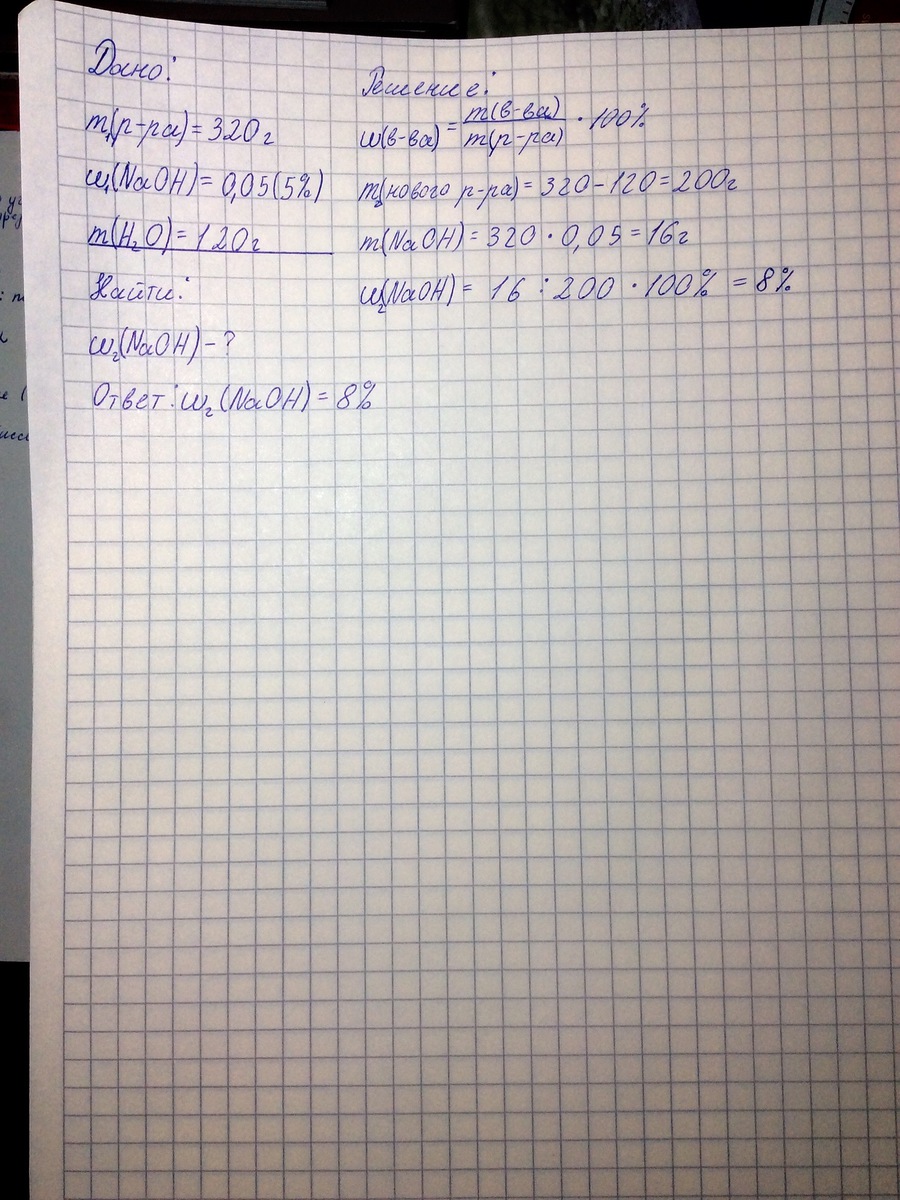 Дано:
m₁(р-ра) = 320г
ω₁(NaOH) = 0,05(5%)
m(H₂O) = 120г
Найти:
ω₂(NaOH) - ?
Ответ: ω₂(NaOH) = 8%
Решение:
ω(в-ва) = m(в-ва) / m(р-ра) · 100%
m₂(нового р-ра) = 320 - 120 = 200г
m(NaOH) = 320 · 0,05 = 16г
ω₂(NaOH) = 16 : 200 · 100% = 8%